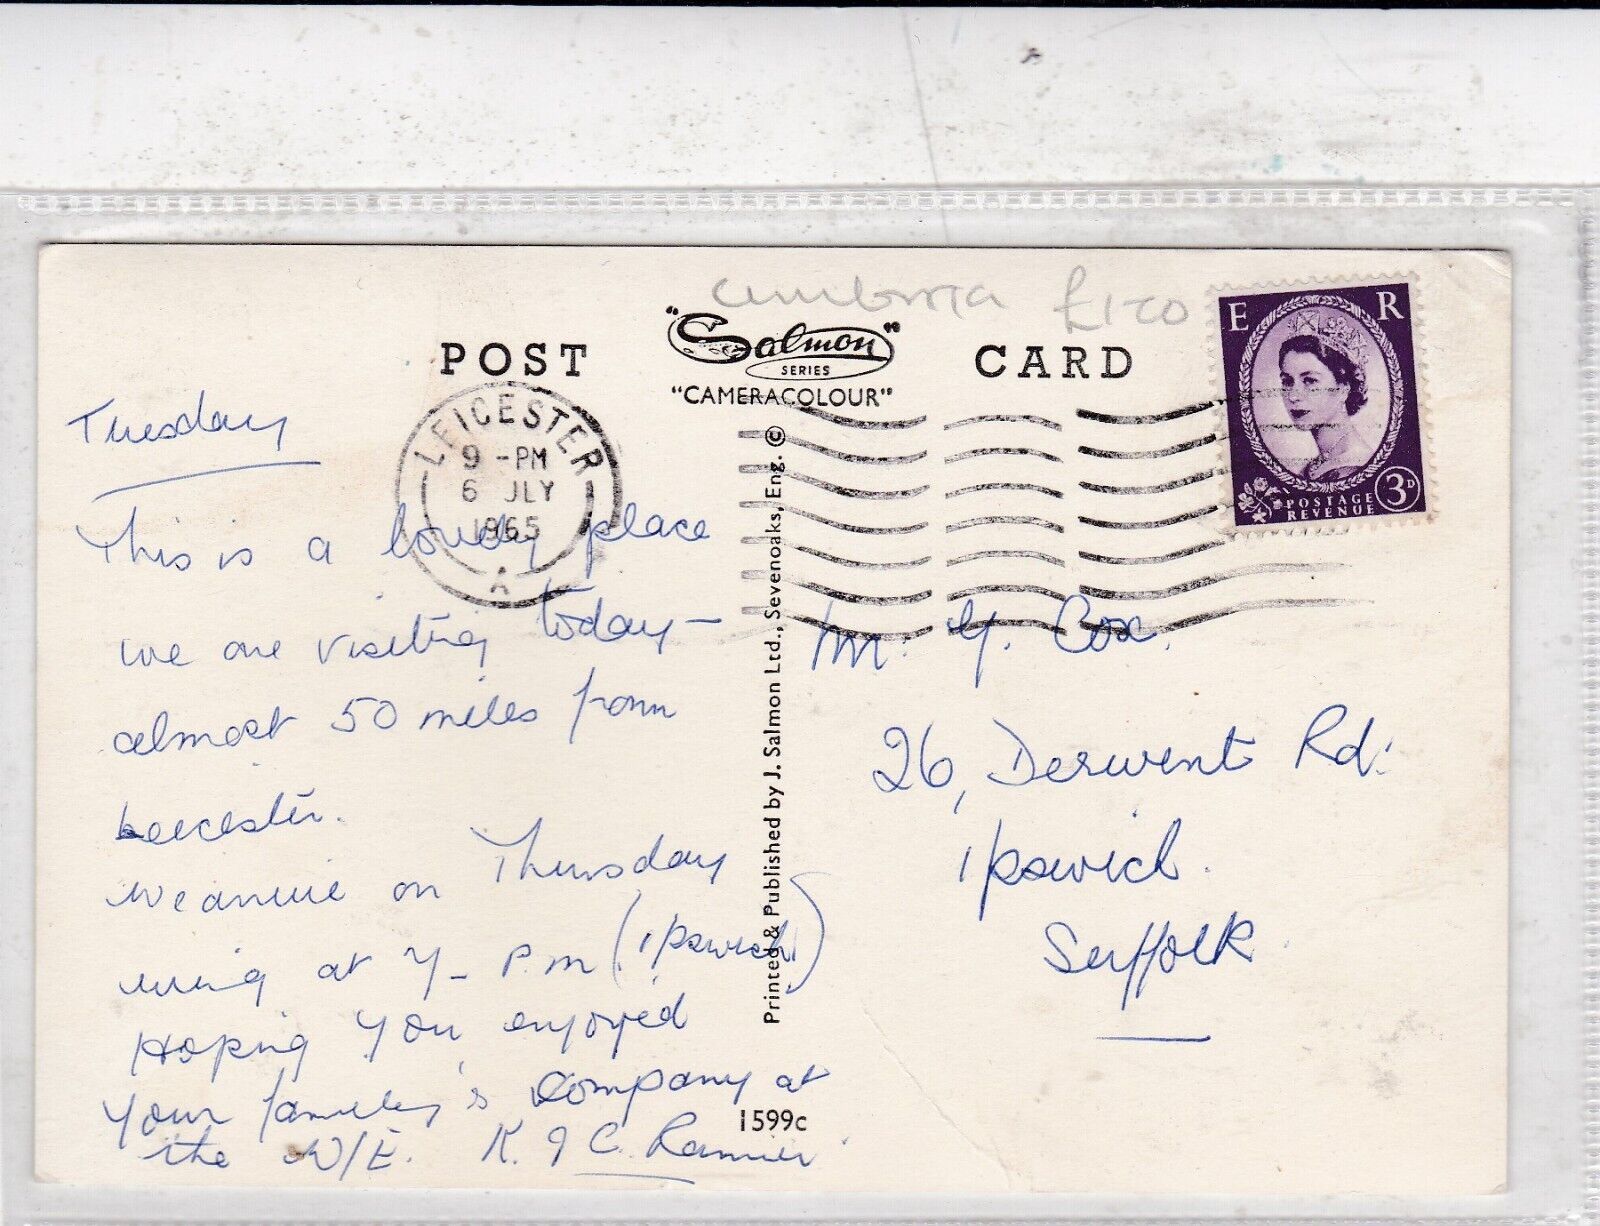 Cumbria £1-20
POST CARD
"Salmon"
SERIES
"CAMERACOLOUR"
E R
POSTAGE
REVENUE
3D
LEICESTER
9 -PM
6 JLY
1965
A
Tuesday
This is a lovely place
we are visiting today –
almost 50 miles from
Leicester.
We arrive on Thursday
at 7– P.m (Ipswich)
Hoping you enjoyed
your family's company at
the W/E. K. & C.
Printed & Published by J. Salmon Ltd., Sevenoaks, Eng. ©
1599c
Mr. Y. Cox.
26, Derwent Rd:
Ipswich.
Suffolk.